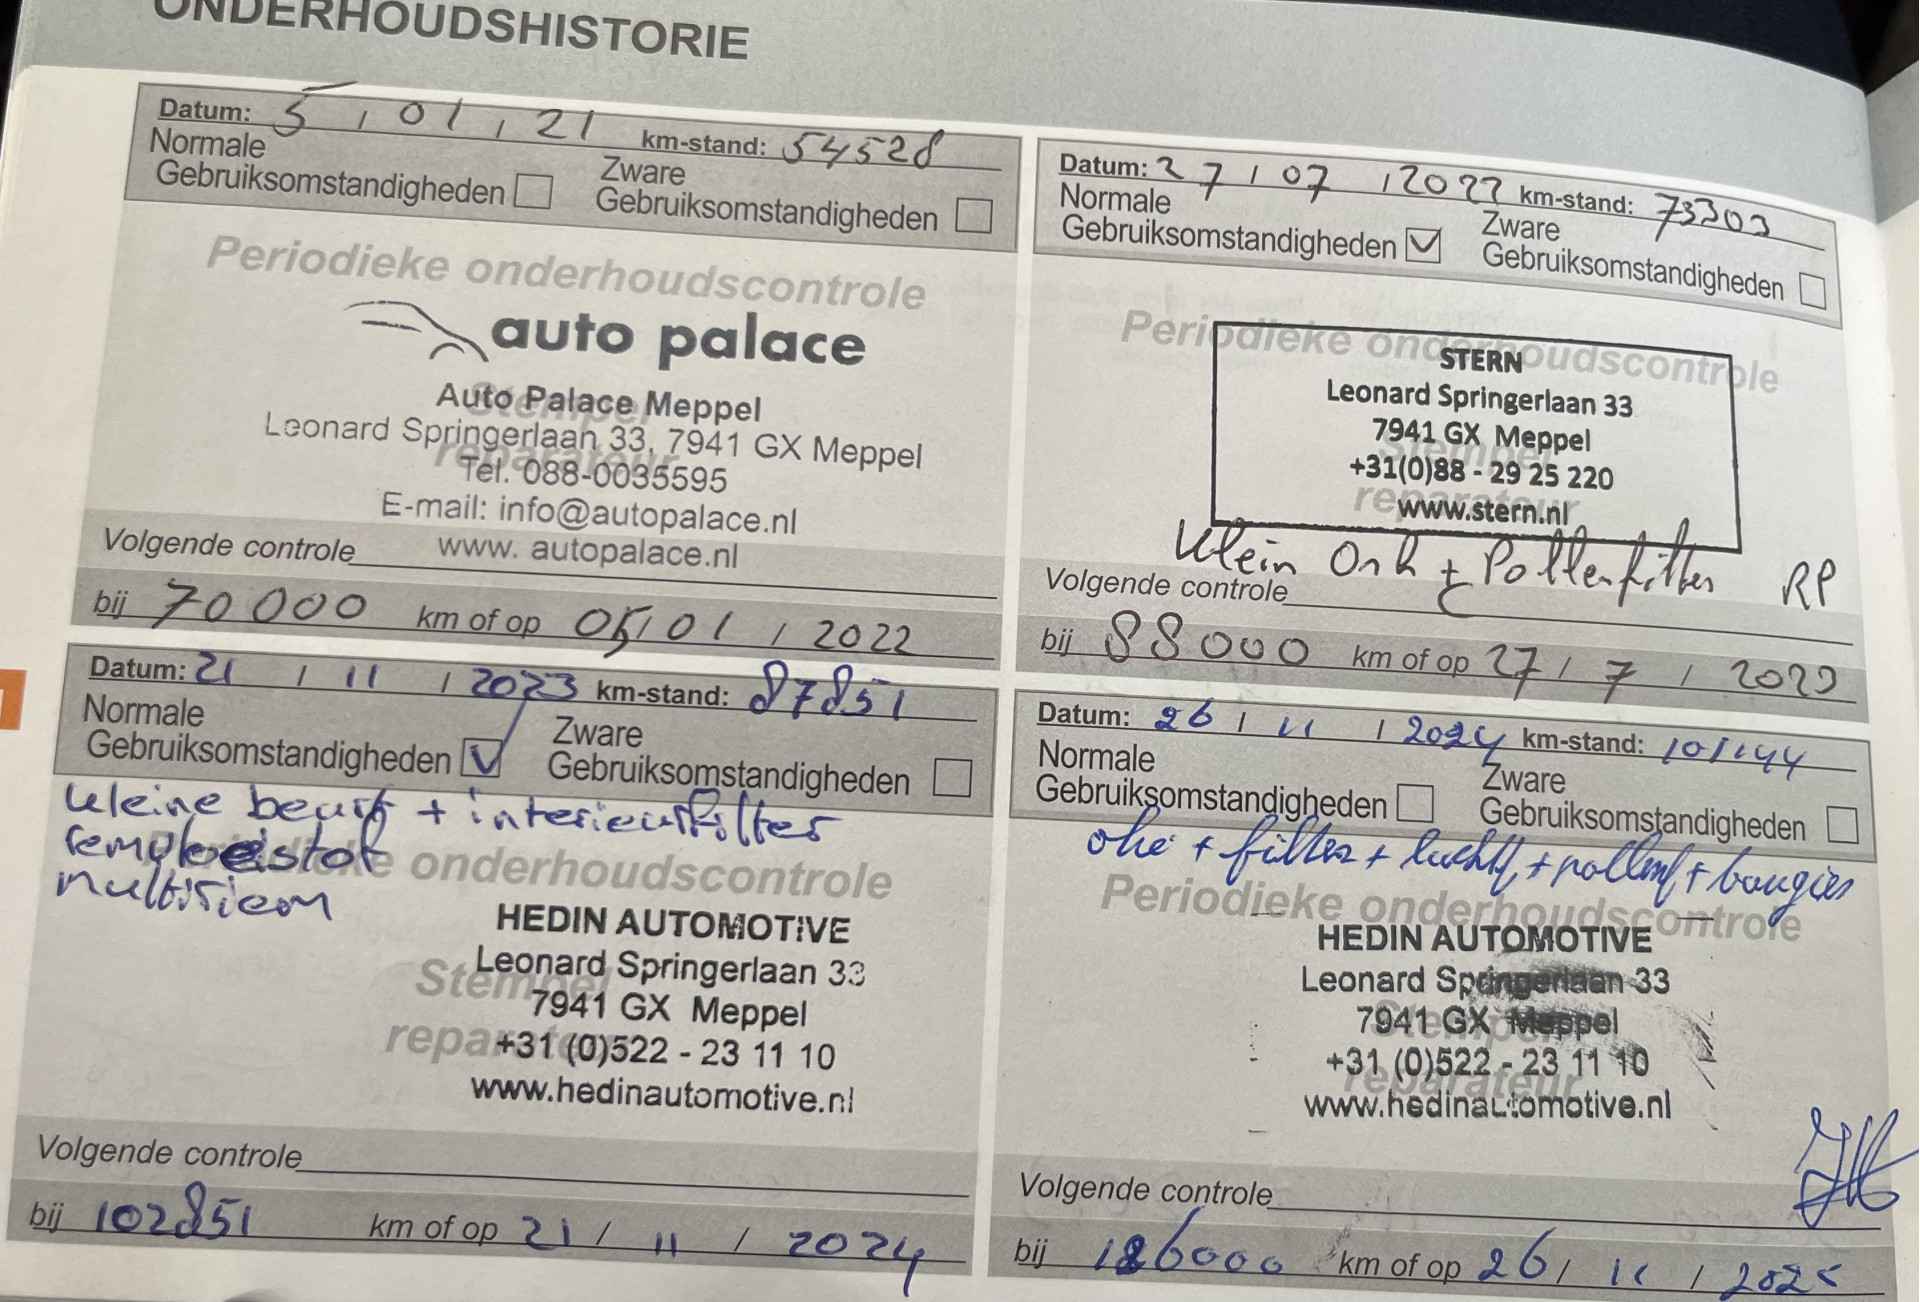 ONDERHOUDSHISTORIE
Datum: 5 / 01 / 21 km-stand: 54528
Normale
Gebruiksomstandigheden
Zware
Gebruiksomstandigheden
Periodieke onderhoudscontrole
auto palace
Stempel
Auto Palace Meppel
Leonard Springerlaan 33, 7941 GX Meppel
reparateur
Tel. 088-0035595
E-mail: info@autopalace.nl
www. autopalace.nl
Volgende controle
bij 70000 km of op 05/01/2022
Datum: 27/07/2022 km-stand: 73303
Normale
Gebruiksomstandigheden
Zware
Gebruiksomstandigheden
Periodieke onderhoudscontrole
STERN
Leonard Springerlaan 33
7941 GX Meppel
Stempel
+31(0)88 - 29 25 220
reparateur
www.stern.nl
Klein Onh + Pollenfilter RP
Volgende controle
bij 88000 km of op 27/7/2023
Datum: 21/11/2023 km-stand: 87851
Normale
Gebruiksomstandigheden
Zware
Gebruiksomstandigheden
kleine beurt + interieurfilter
Periodieke onderhoudscontrole
multiriem
HEDIN AUTOMOTIVE
Leonard Springerlaan 33
Stempel
7941 GX Meppel
reparateur
+31 (0)522 - 23 11 10
www.hedinautomotive.nl
Volgende controle
bij 102851 km of op 21/11/2024
Datum: 26/11/2024 km-stand: 101144
Normale
Gebruiksomstandigheden
Zware
Gebruiksomstandigheden
olie + filter + luchtf + pollenf + bougies
Periodieke onderhoudscontrole
HEDIN AUTOMOTIVE
Leonard Springerlaan 33
Stempel
7941 GX Meppel
+31 (0)522 - 23 11 10
reparateur
www.hedinautomotive.nl
Volgende controle
bij km of op 26/11/2025